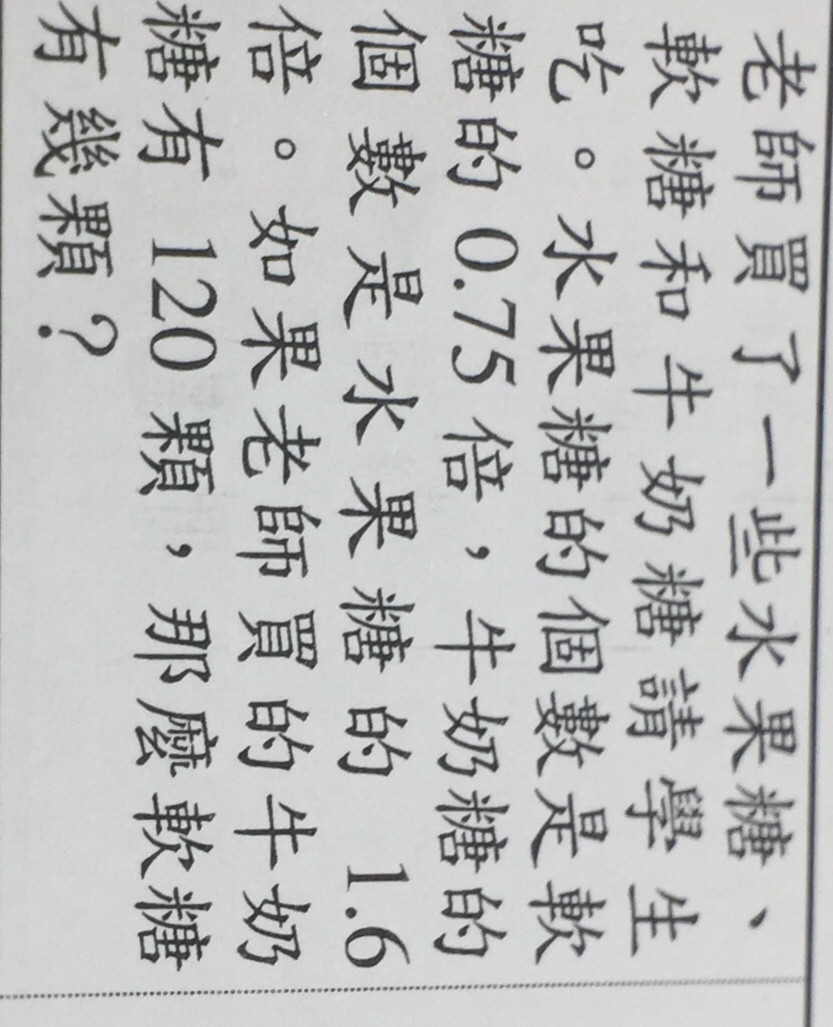 老師買了一些水果糖、
軟糖和牛奶糖請學生
吃。水果糖的個數是軟
糖的 0.75 倍，牛奶糖的
個數是水果糖的 1.6
倍。如果老師買的牛奶
糖有 120 顆，那麼軟糖
有幾顆？